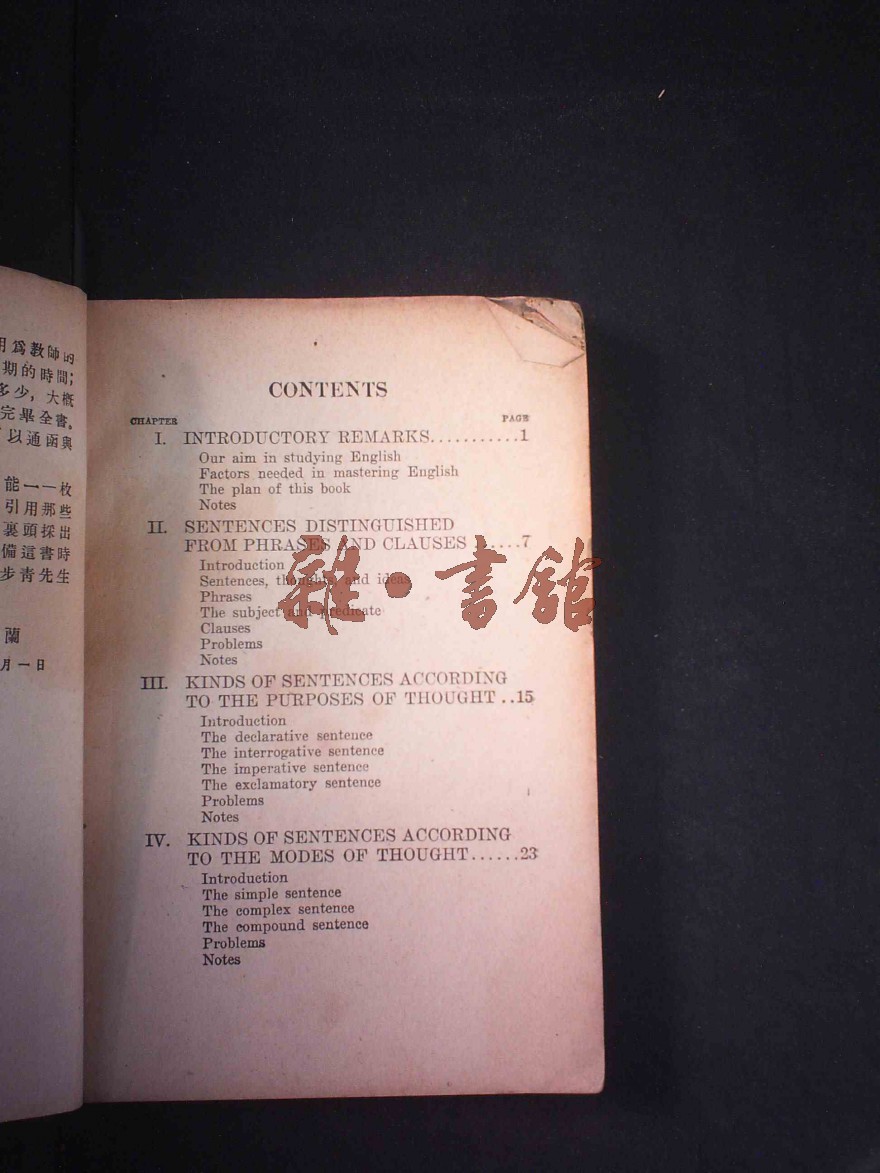 用爲教師的
期的時間;
多少,大概
完畢全書。
以通函與
能一一枚
引用那些
裏頭採出
備這書時
步青先生
蘭
月一日
CONTENTS
CHAPTER PAGE
I. INTRODUCTORY REMARKS...........1
Our aim in studying English
Factors needed in mastering English
The plan of this book
Notes
II. SENTENCES DISTINGUISHED
FROM PHRASES AND CLAUSES ......7
Introduction
Sentences, thoughts, and ideas
Phrases
The subject and predicate
Clauses
Problems
Notes
III. KINDS OF SENTENCES ACCORDING
TO THE PURPOSES OF THOUGHT ..15
Introduction
The declarative sentence
The interrogative sentence
The imperative sentence
The exclamatory sentence
Problems
Notes
IV. KINDS OF SENTENCES ACCORDING
TO THE MODES OF THOUGHT......23
Introduction
The simple sentence
The complex sentence
The compound sentence
Problems
Notes
雜·書館